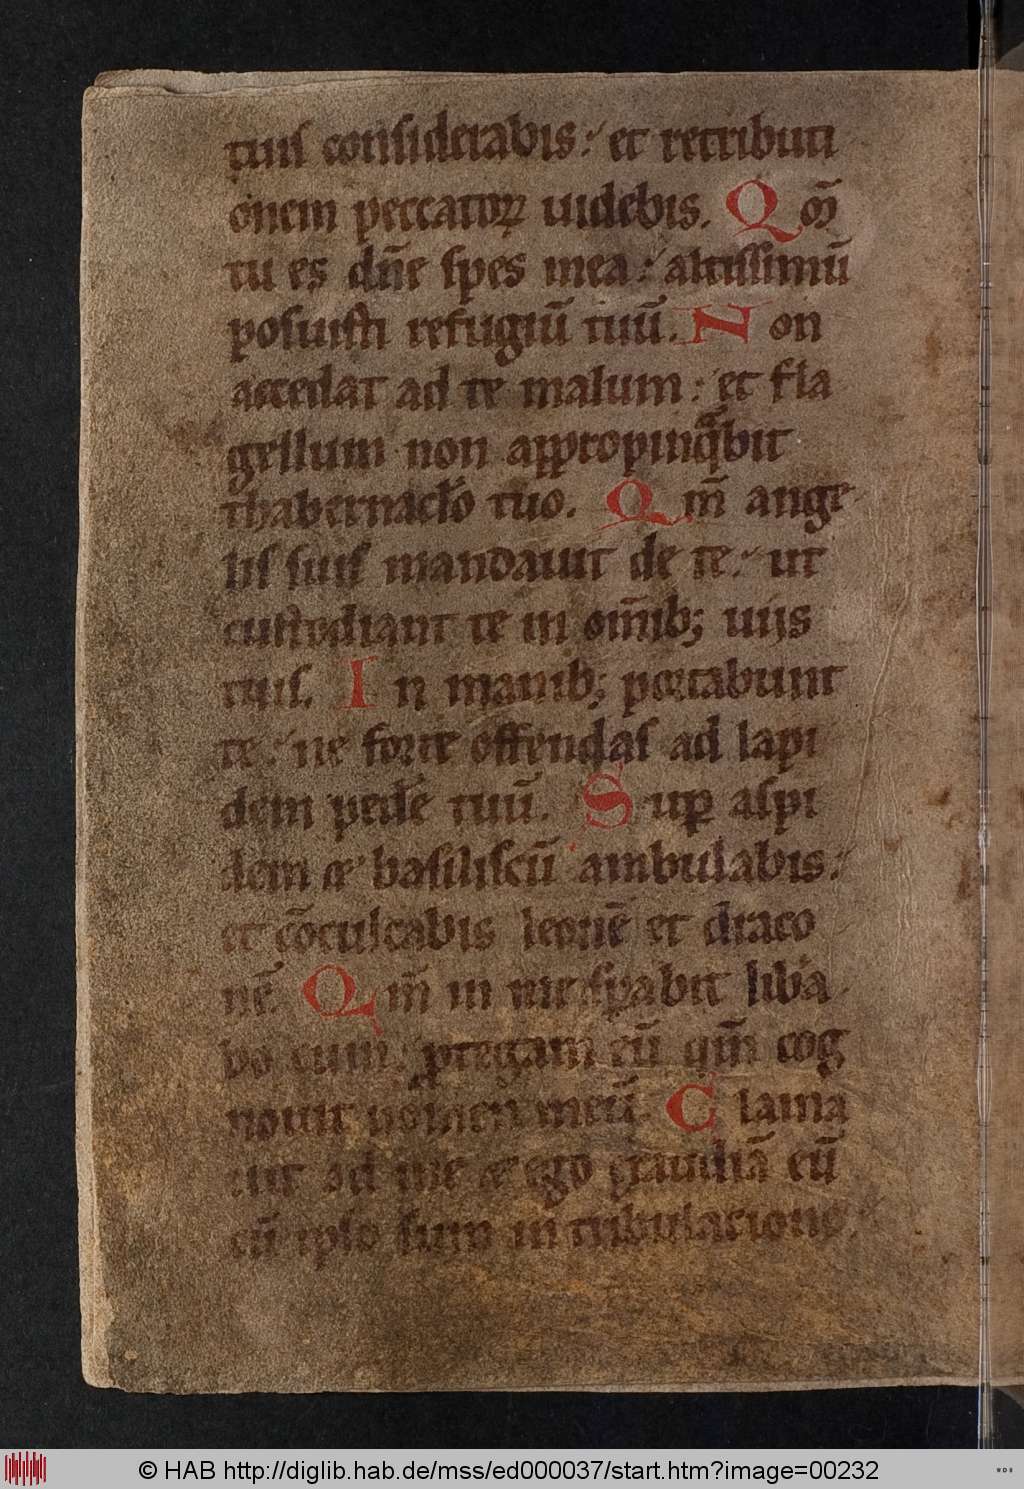 tuis considerabis: et retributi
onem peccatoꝝ uidebis. Qm̄
tu es dn̄e spes mea: altissimū
posuisti refugiū tuū. Non
accedat ad te malum: et fla
gellum non appropinqͣbit
thabernaclo tuo. Qm̄ ange
lis suis mandauit de te: ut
custodiant te in om̄ib; uiis
tuis. In manib; portabunt
te: ne forte offendas ad lapi
dem pedē tuū. Suꝑ aspi
dem & basiliscū ambulabis:
et cōculcabis leonē et draco
nē. Qm̄ in me sꝑabit liba
bo eum: ꝓtegam eū qm̄ cog
nouit nomen meū. Clama
uit ad me & ego exaudiā eū
cū ipso sum in tribulatione.
© HAB http://diglib.hab.de/mss/ed000037/start.htm?image=00232